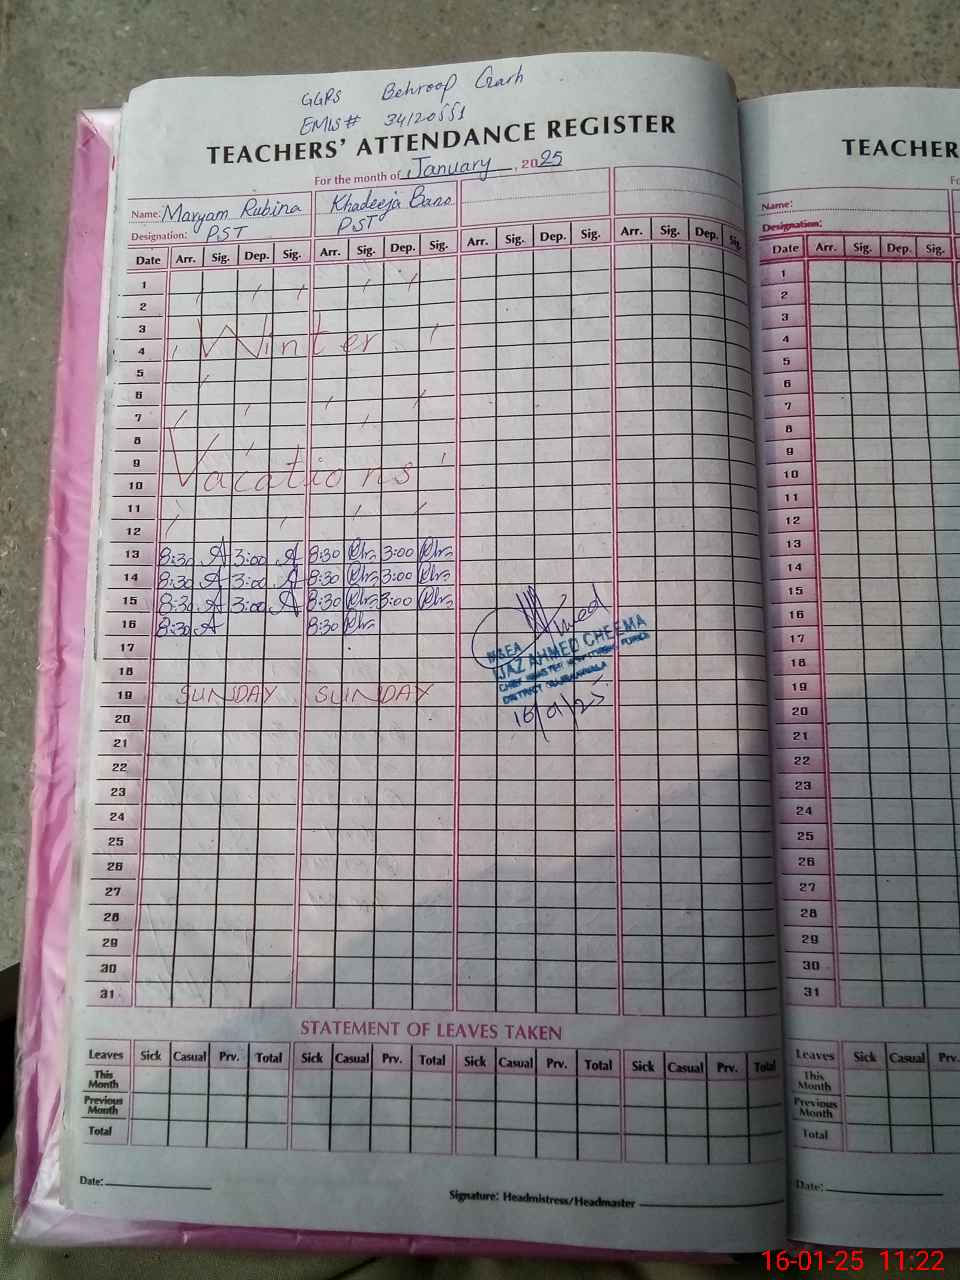 GGPS Behroop Garh
EMIS# 34120551
TEACHERS' ATTENDANCE REGISTER
For the month of January, 2025
Name: Maryam Rubina Khadeeja Bano
Designation: PST PST
Date Arr. Sig. Dep. Sig. Arr. Sig. Dep. Sig. Arr. Sig. Dep. Sig. Arr. Sig. Dep. Sig.
1
2
3
Winter
4
5
6
7
8
9
Vacations
10
11
12
13 8:30 A 3:00 A 8:30 3:00
14 8:30 A 3:00 A 8:30 3:00
15 8:30 A 3:00 A 8:30 3:00
16 8:30 A 8:30
17
18
19 SUNDAY SUNDAY
20
21
22
23
24
25
26
27
28
29
30
31
Ahmed
M&EA
IJAZ AHMED CHEEMA
16/01/25
STATEMENT OF LEAVES TAKEN
Leaves Sick Casual Prv. Total Sick Casual Prv. Total Sick Casual Prv. Total Sick Casual Prv. Total
This Month
Previous Month
Total
Date:
Signature: Headmistress/Headmaster
TEACHER
Name:
Designation:
Date Arr. Sig. Dep. Sig.
1
2
3
4
5
6
7
8
9
10
11
12
13
14
15
16
17
18
19
20
21
22
23
24
25
26
27
28
29
30
31
Leaves Sick Casual Prv.
This Month
Previous Month
Total
Date:
16-01-25 11:22